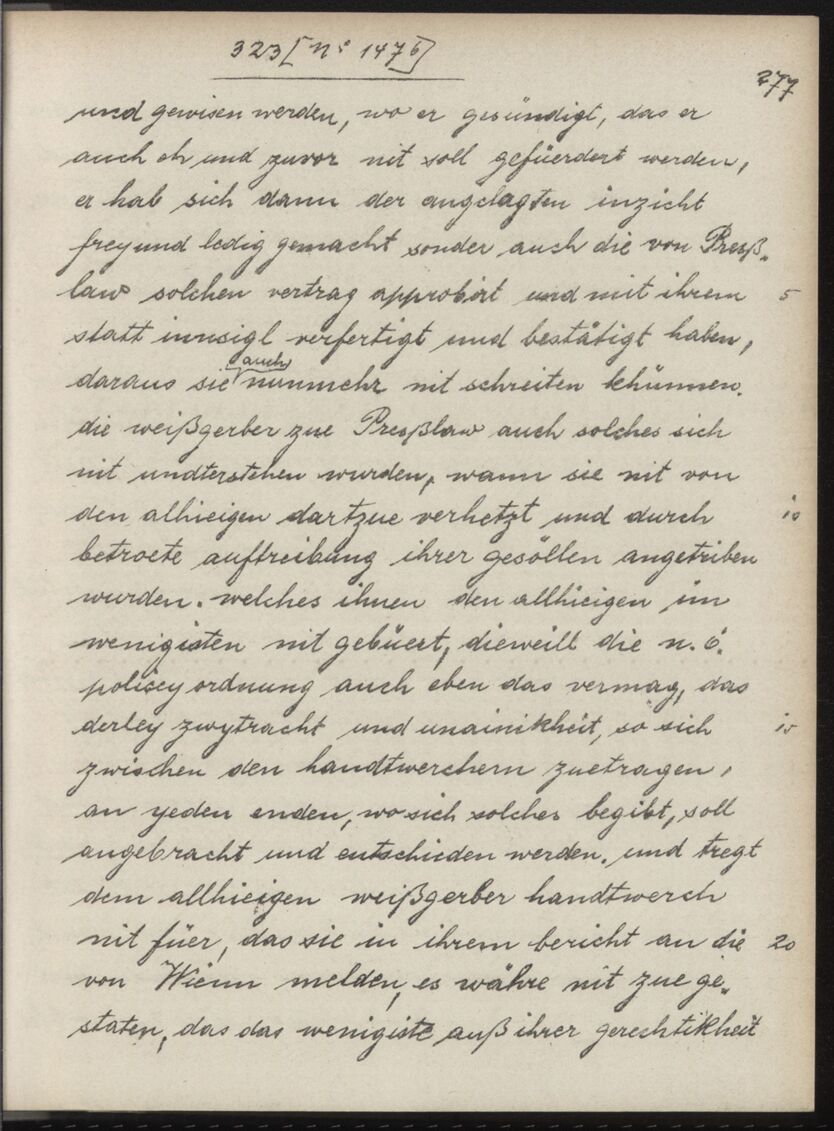 323 [nº 147b]
277
und gewisen werden, wo er gesündigt, das er
auch eh und zuvor nit soll gefüerdert werden,
er hab sich dann der angelagten inzicht
frey und ledig gemacht sonder auch die von Presß-
law solchen vertrag approbirt und mit ihrem 5
statt innsigl verfertigt und bestätigt haben,
daraus sie auch nunmehr nit schreiten khünnen.
die weißgerber zue Presßlaw auch solches sich
nit undterstehen wurden, wann sie nit von
den alhieigen dartzue verhetzt und durch 10
betroete auftreibung ihrer gesöllen angetriben
wurden. welches ihnen den allhieigen im
wenigisten nit gebüert, dieweill die n. ö.
policey ordnung auch eben das vermag, das
derley zwytracht und unainikheit, so sich 15
zwischen den handtwerchern zuetragen,
an yeden enden, wo sich solches begibt, soll
angebracht und entschieden werden. und tregt
dem allhieigen weißgerber handtwerch
nit füer, das sie in ihrem bericht an die 20
von Wienn melden, es währe nit zue ge-
staten, das das wenigiste auß ihrer gerechtikheit